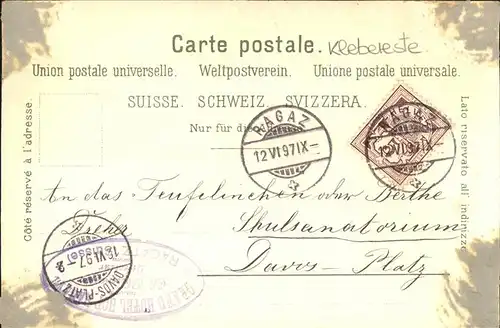 Carte postale. Klebereste
Union postale universelle. Weltpostverein. Unione postale universale.
SUISSE. SCHWEIZ. SVIZZERA.
Nur für die
Côté réservé à l'adresse.
Lato riservato all' indirizzo
RAGAZ
12 VI 97 IX–
RAGAZ
12 VI 97 IX–
An das Teufelinchen oder Berthe
Dreher Schulsanatorium
Davos-Platz
DAVOS-PLATZ
GRAND HOTEL